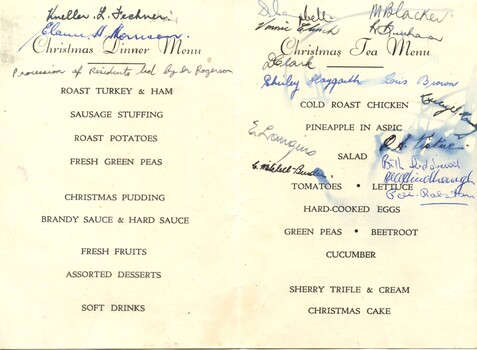 Kneller. L. Fechner.
Elaine H. Morrison.
Christmas Dinner Menu
Procession of Residents led by Dr Rogerson
ROAST TURKEY & HAM
SAUSAGE STUFFING
ROAST POTATOES
FRESH GREEN PEAS
CHRISTMAS PUDDING
BRANDY SAUCE & HARD SAUCE
FRESH FRUITS
ASSORTED DESSERTS
SOFT DRINKS
M Blacker
Christmas Tea Menu
D Clark
Shirley Haygarth
Lois Brown
COLD ROAST CHICKEN
PINEAPPLE IN ASPIC
SALAD
TOMATOES • LETTUCE
HARD-COOKED EGGS
GREEN PEAS • BEETROOT
CUCUMBER
SHERRY TRIFLE & CREAM
CHRISTMAS CAKE